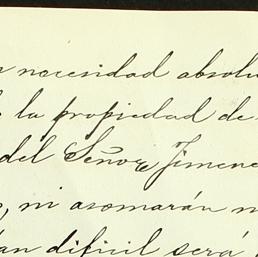 necesidad absolu
la propiedad de
del Señor Jimene
, ni asomarán m
an dificil será